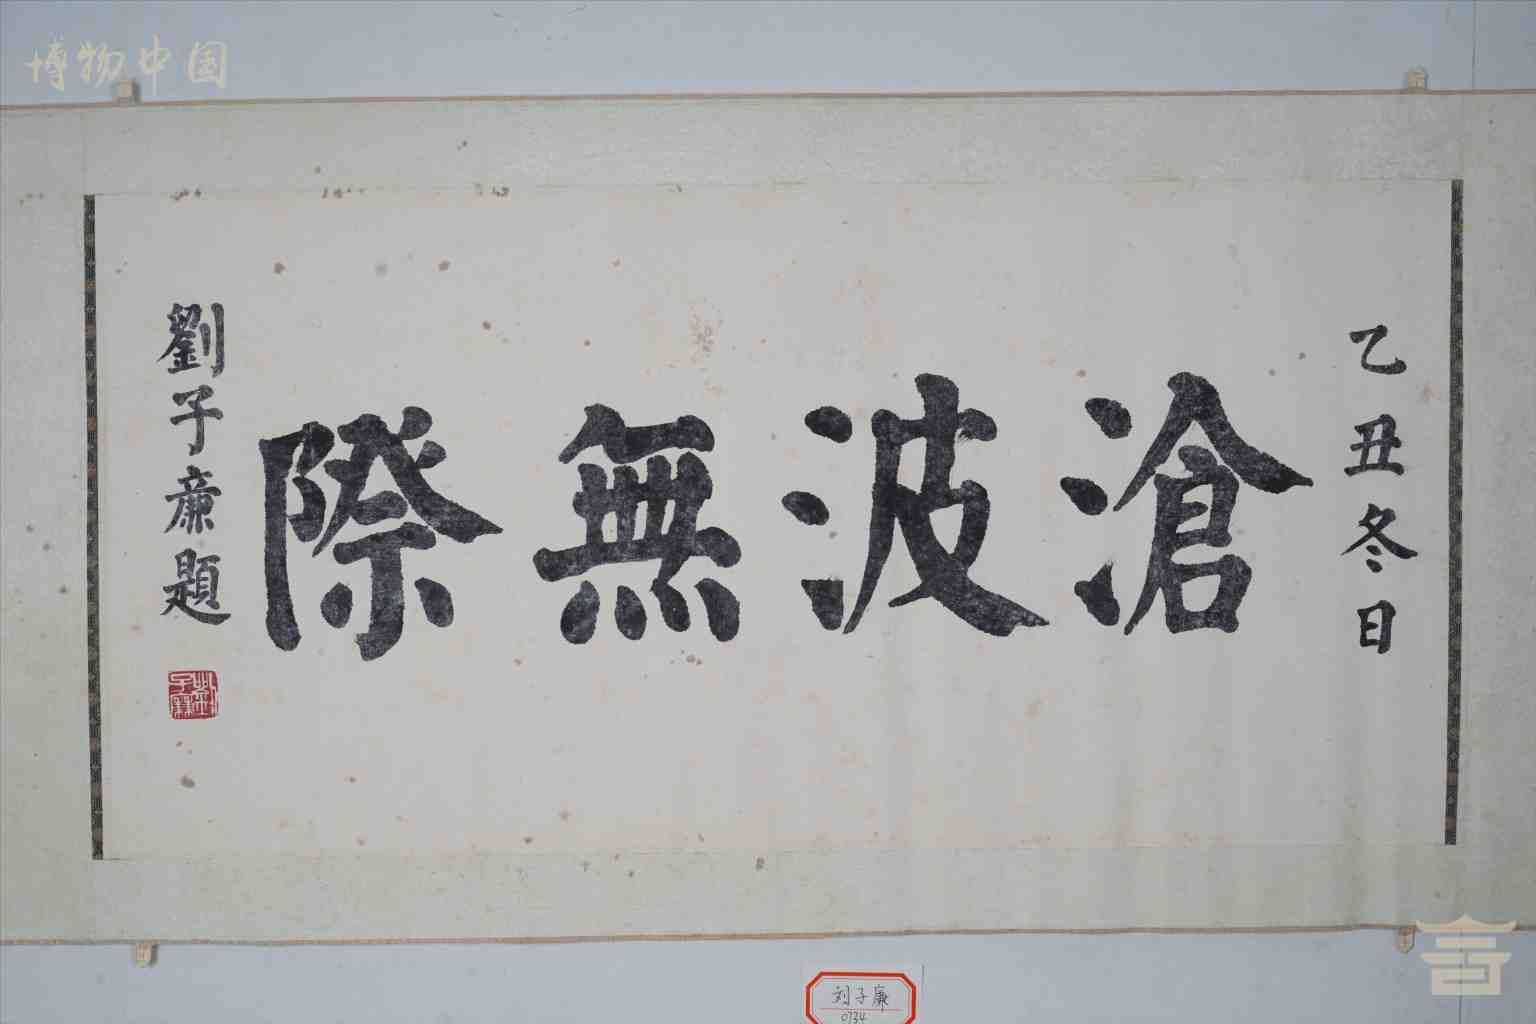 博物中国
乙丑冬日
滄波無際
劉子廉題
刘子廉
0734